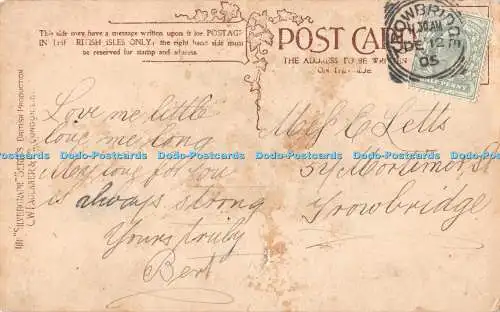 This side may have a message written upon it for POSTAGE
IN THE BRITISH ISLES ONLY, the right hand side must
be reserved for stamp and address.
POST CARD
THE ADDRESS TO BE WRITTEN
ON THIS SIDE
TROWBRIDGE
11.30 AM
DE 12
05
"SILVERGRAPH" SERIES. BRITISH PRODUCTION
C.W. FAULKNER & CO. LTD. LONDON. E.C.
Love me little
love me long
My love for you
is always strong
Yours truly
Bert
Miss E Letts
54 Mortimer St
Trowbridge
Dodo-Postcards Dodo-Postcards Dodo-Postcards Dodo-Postcards Dodo-Postcards Dodo-Postcards